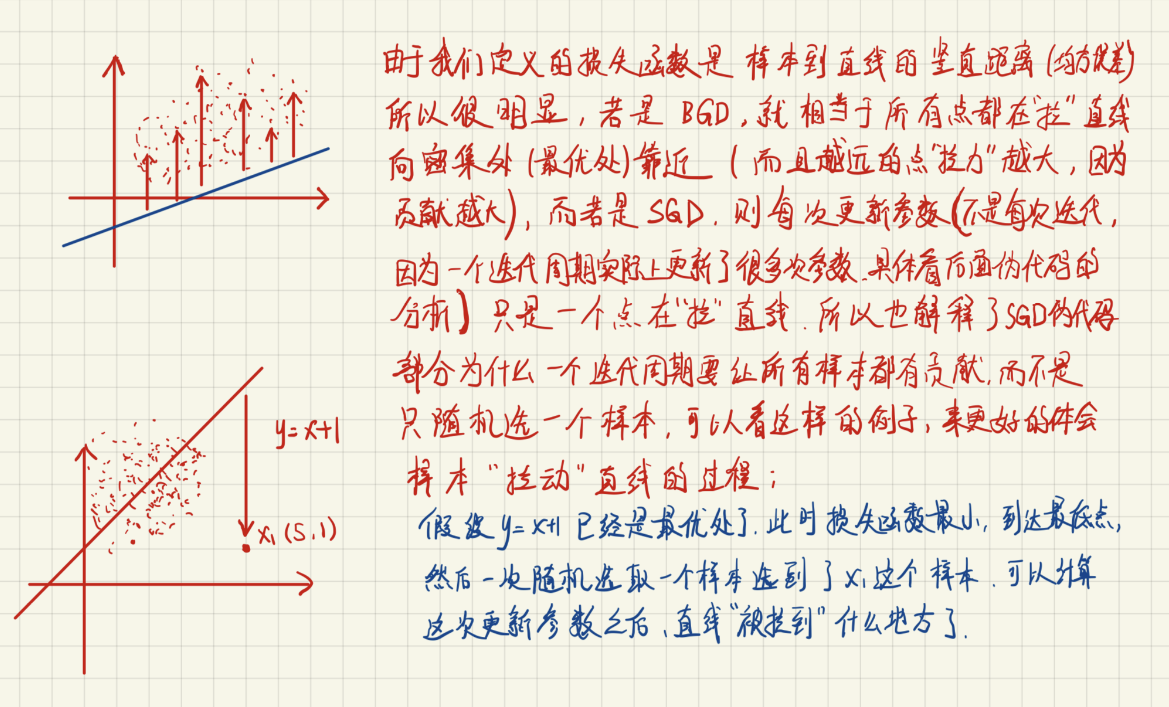 由于我们定义的损失函数是样本到直线的竖直距离(均方误差)
所以很明显，若是BGD，就相当于所有点都在"拉"直线
向密集处(最优处)靠近 (而且越远的点"拉力"越大，因为
贡献越大)，而若是SGD，则每次更新参数(不是每次迭代，
因为一个迭代周期实际上更新了很多次参数,具体看后面伪代码的
分析) 只是一个点在"拉"直线.所以也解释了SGD伪代码
部分为什么一个迭代周期要让所有样本都有贡献,而不是
只随机选一个样本，可以看这样的例子，来更好的体会
样本"拉动"直线的过程；
y=x+1
x₁(5,1)
假设y=x+1已经是最优处了.此时损失函数最小，到达最低点，
然后一次随机选取一个样本选到了x₁这个样本.可以计算
这次更新参数之后,直线"被拉到"什么地方了.